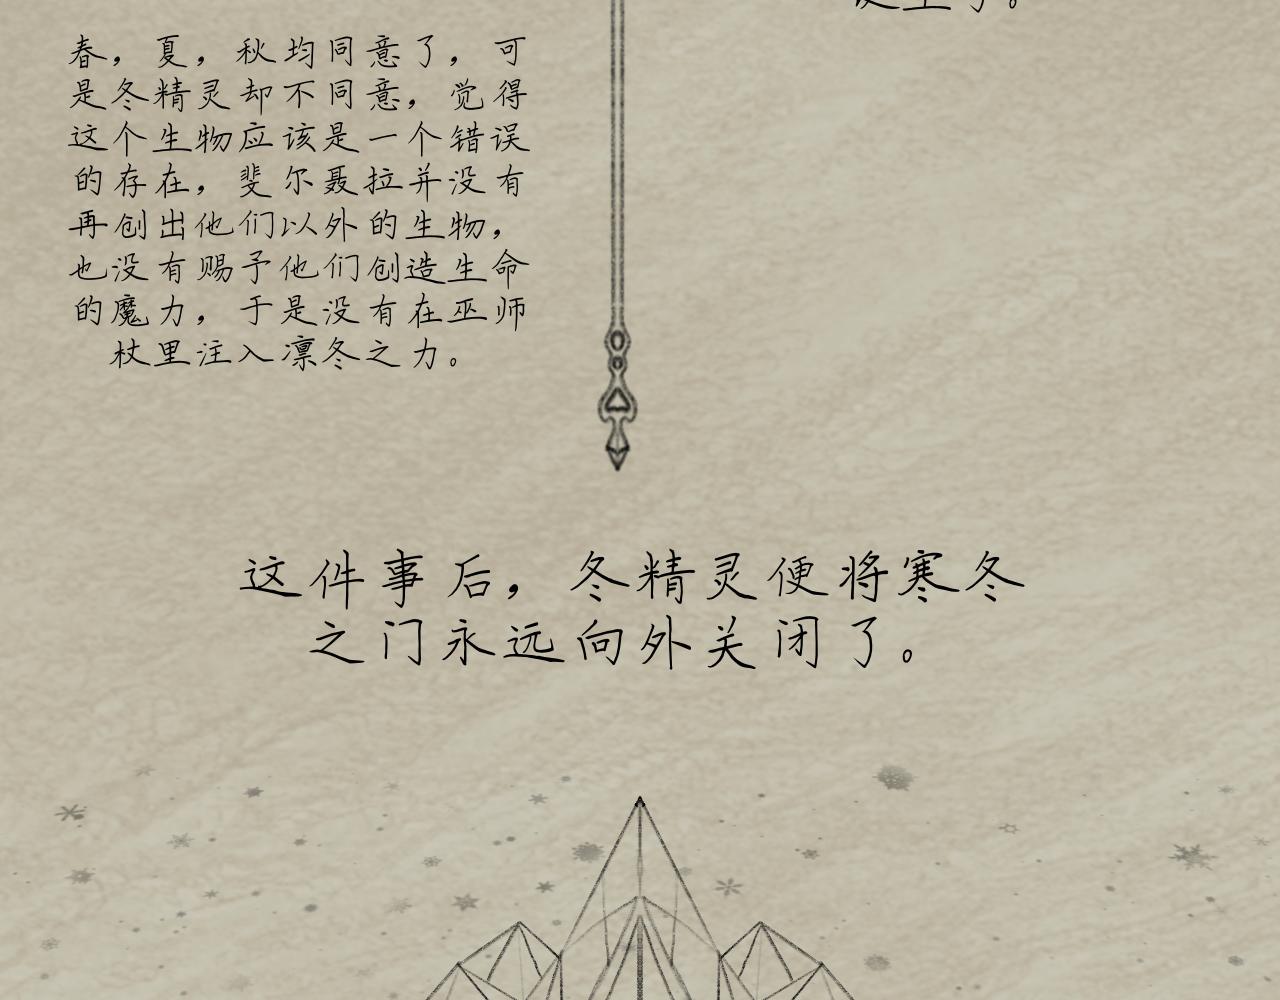 春，夏，秋均同意了，可
是冬精灵却不同意，觉得
这个生物应该是一个错误
的存在，斐尔聂拉并没有
再创出他们以外的生物，
也没有赐予他们创造生命
的魔力，于是没有在巫师
杖里注入凛冬之力。
这件事后，冬精灵便将寒冬
之门永远向外关闭了。